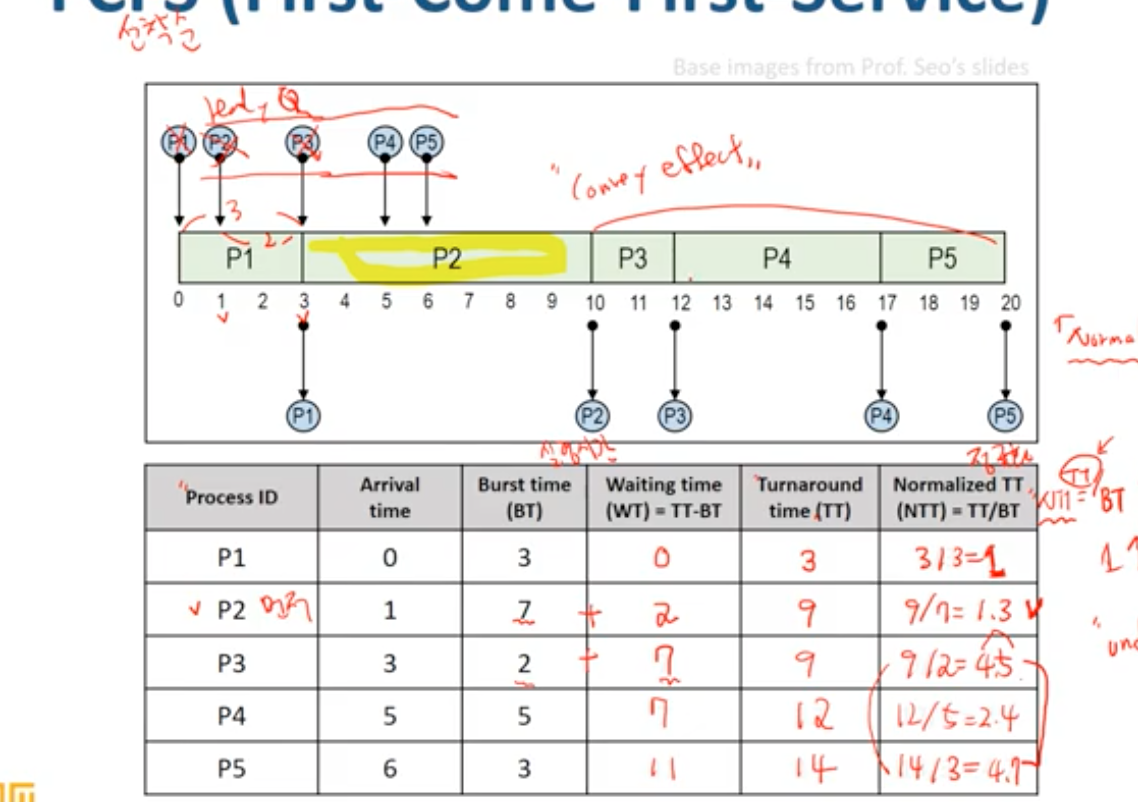 FCFS (First-Come-First-Service)
선착순
Base images from Prof. Seo's slides
ready Q
P1 P2 P3 P4 P5
"Convoy effect"
3
2
P1 P2 P3 P4 P5
0 1 2 3 4 5 6 7 8 9 10 11 12 13 14 15 16 17 18 19 20
P1 P2 P3 P4 P5
Norma
실행시간
Process ID Arrival time Burst time (BT) Waiting time (WT) = TT-BT Turnaround time (TT) Normalized TT (NTT) = TT/BT
NTT = TT/BT
P1 0 3 0 3 3/3=1
1↑
P2 1 7 + 2 9 9/7=1.3
P3 3 2 + 7 9 9/2=4.5
P4 5 5 7 12 12/5=2.4
P5 6 3 11 14 14/3=4.7